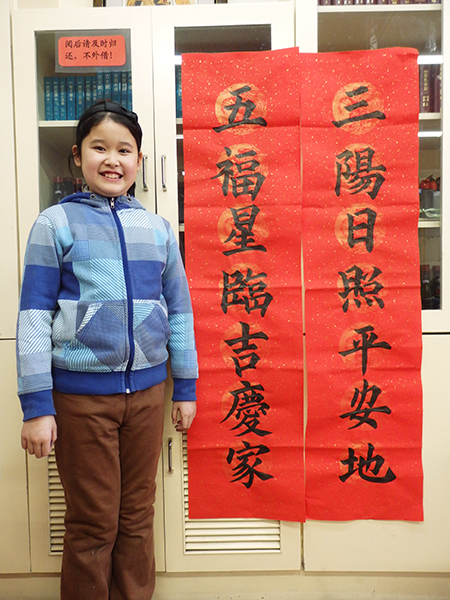 阅后请及时归
还，不外借！
三陽日照平安地
五福星臨吉慶家